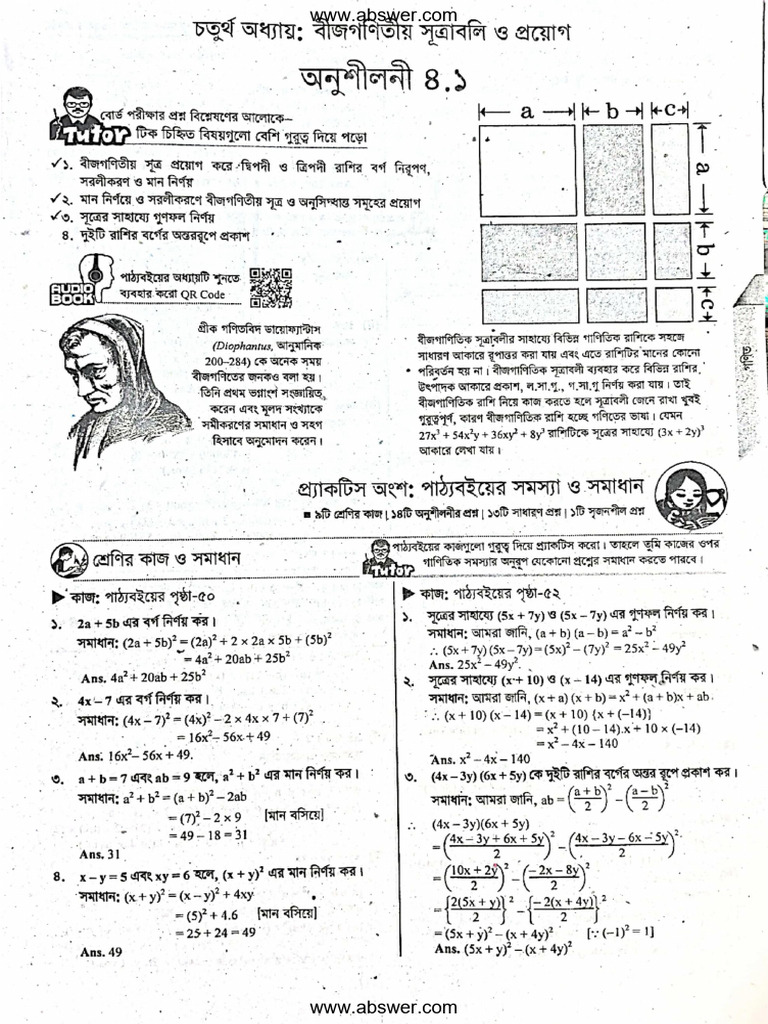 www.abswer.com
চতুর্থ অধ্যায়: বীজগণিতীয় সূত্রাবলি ও প্রয়োগ
অনুশীলনী ৪.১
বোর্ড পরীক্ষার প্রশ্ন বিশ্লেষণের আলোকে–
Tutor টিক চিহ্নিত বিষয়গুলো বেশি গুরুত্ব দিয়ে পড়ো
✓১. বীজগণিতীয় সূত্র প্রয়োগ করে দ্বিপদী ও ত্রিপদী রাশির বর্গ নিরূপণ,
সরলীকরণ ও মান নির্ণয়
✓২. মান নির্ণয়ে ও সরলীকরণে বীজগণিতীয় সূত্র ও অনুসিদ্ধান্ত সমূহের প্রয়োগ
✓৩. সূত্রের সাহায্যে গুণফল নির্ণয়
৪. দুইটি রাশির বর্গের অন্তররূপে প্রকাশ
a b c
a
b
c
AUDIO BOOK
পাঠ্যবইয়ের অধ্যায়টি শুনতে
ব্যবহার করো QR Code
গ্রীক গণিতবিদ ডায়োফ্যান্টাস
(Diophantus, আনুমানিক
200–284) কে অনেক সময়
বীজগণিতের জনকও বলা হয়।
তিনি প্রথম ভগ্নাংশ সংজ্ঞায়িত
করেন এবং মূলদ সংখ্যাকে
সমীকরণের সমাধান ও সহগ
হিসাবে অনুমোদন করেন।
বীজগাণিতিক সূত্রাবলীর সাহায্যে বিভিন্ন গাণিতিক রাশিকে সহজে
সাধারণ আকারে রূপান্তর করা যায় এবং এতে রাশিটির মানের কোনো
পরিবর্তন হয় না। বীজগাণিতিক সূত্রাবলী ব্যবহার করে বিভিন্ন রাশির
উৎপাদক আকারে প্রকাশ, ল.সা.গু., গ.সা.গু নির্ণয় করা যায়। তাই
বীজগাণিতিক রাশি নিয়ে কাজ করতে হলে সূত্রাবলী জেনে রাখা খুবই
গুরুত্বপূর্ণ, কারণ বীজগাণিতিক রাশি হচ্ছে গণিতের ভাষা। যেমন
27x³ + 54x²y + 36xy² + 8y³ রাশিটিকে সূত্রের সাহায্যে (3x + 2y)³
আকারে লেখা যায়।
গণিত
প্র্যাকটিস অংশ: পাঠ্যবইয়ের সমস্যা ও সমাধান
■ ৯টি শ্রেণির কাজ | ১৪টি অনুশীলনীর প্রশ্ন | ১৩টি সাধারণ প্রশ্ন | ১টি সৃজনশীল প্রশ্ন
শ্রেণির কাজ ও সমাধান
পাঠ্যবইয়ের কাজগুলো গুরুত্ব দিয়ে প্র্যাকটিস করো। তাহলে তুমি কাজের ওপর
Tutor গাণিতিক সমস্যার অনুরূপ যেকোনো প্রশ্নের সমাধান করতে পারবে।
▶ কাজ: পাঠ্যবইয়ের পৃষ্ঠা-৫০
১. 2a + 5b এর বর্গ নির্ণয় কর।
সমাধান: (2a + 5b)² = (2a)² + 2 × 2a × 5b + (5b)²
= 4a² + 20ab + 25b²
Ans. 4a² + 20ab + 25b²
২. 4x – 7 এর বর্গ নির্ণয় কর।
সমাধান: (4x – 7)² = (4x)² – 2 × 4x × 7 + (7)²
= 16x² – 56x + 49
Ans. 16x² – 56x + 49.
৩. a + b = 7 এবং ab = 9 হলে, a² + b² এর মান নির্ণয় কর।
সমাধান: a² + b² = (a + b)² – 2ab
= (7)² – 2 × 9 [মান বসিয়ে]
= 49 – 18 = 31
Ans. 31
৪. x – y = 5 এবং xy = 6 হলে, (x + y)² এর মান নির্ণয় কর।
সমাধান: (x + y)² = (x – y)² + 4xy
= (5)² + 4.6 [মান বসিয়ে]
= 25 + 24 = 49
Ans. 49
▶ কাজ: পাঠ্যবইয়ের পৃষ্ঠা-৫২
১. সূত্রের সাহায্যে (5x + 7y) ও (5x – 7y) এর গুণফল নির্ণয় কর।
সমাধান: আমরা জানি, (a + b) (a – b) = a² – b²
∴ (5x + 7y) (5x – 7y) = (5x)² – (7y)² = 25x² – 49y²
Ans. 25x² – 49y².
২. সূত্রের সাহায্যে (x + 10) ও (x – 14) এর গুণফল নির্ণয় কর।
সমাধান: আমরা জানি, (x + a) (x + b) = x² + (a + b)x + ab
∴ (x + 10) (x – 14) = (x + 10) {x + (–14)}
= x² + (10 – 14).x + 10 × (–14)
= x² – 4x – 140
Ans. x² – 4x – 140
৩. (4x – 3y) (6x + 5y) কে দুইটি রাশির বর্গের অন্তর রূপে প্রকাশ কর।
সমাধান: আমরা জানি, ab = ((a + b)/2)² – ((a – b)/2)²
∴ (4x – 3y)(6x + 5y)
= ((4x – 3y + 6x + 5y)/2)² – ((4x – 3y – 6x – 5y)/2)²
= ((10x + 2y)/2)² – ((– 2x – 8y)/2)²
= {2(5x + y)/2}² – {– 2(x + 4y)/2}²
= (5x + y)² – (x + 4y)² [∵ (–1)² = 1]
Ans. (5x + y)² – (x + 4y)²
www.abswer.com